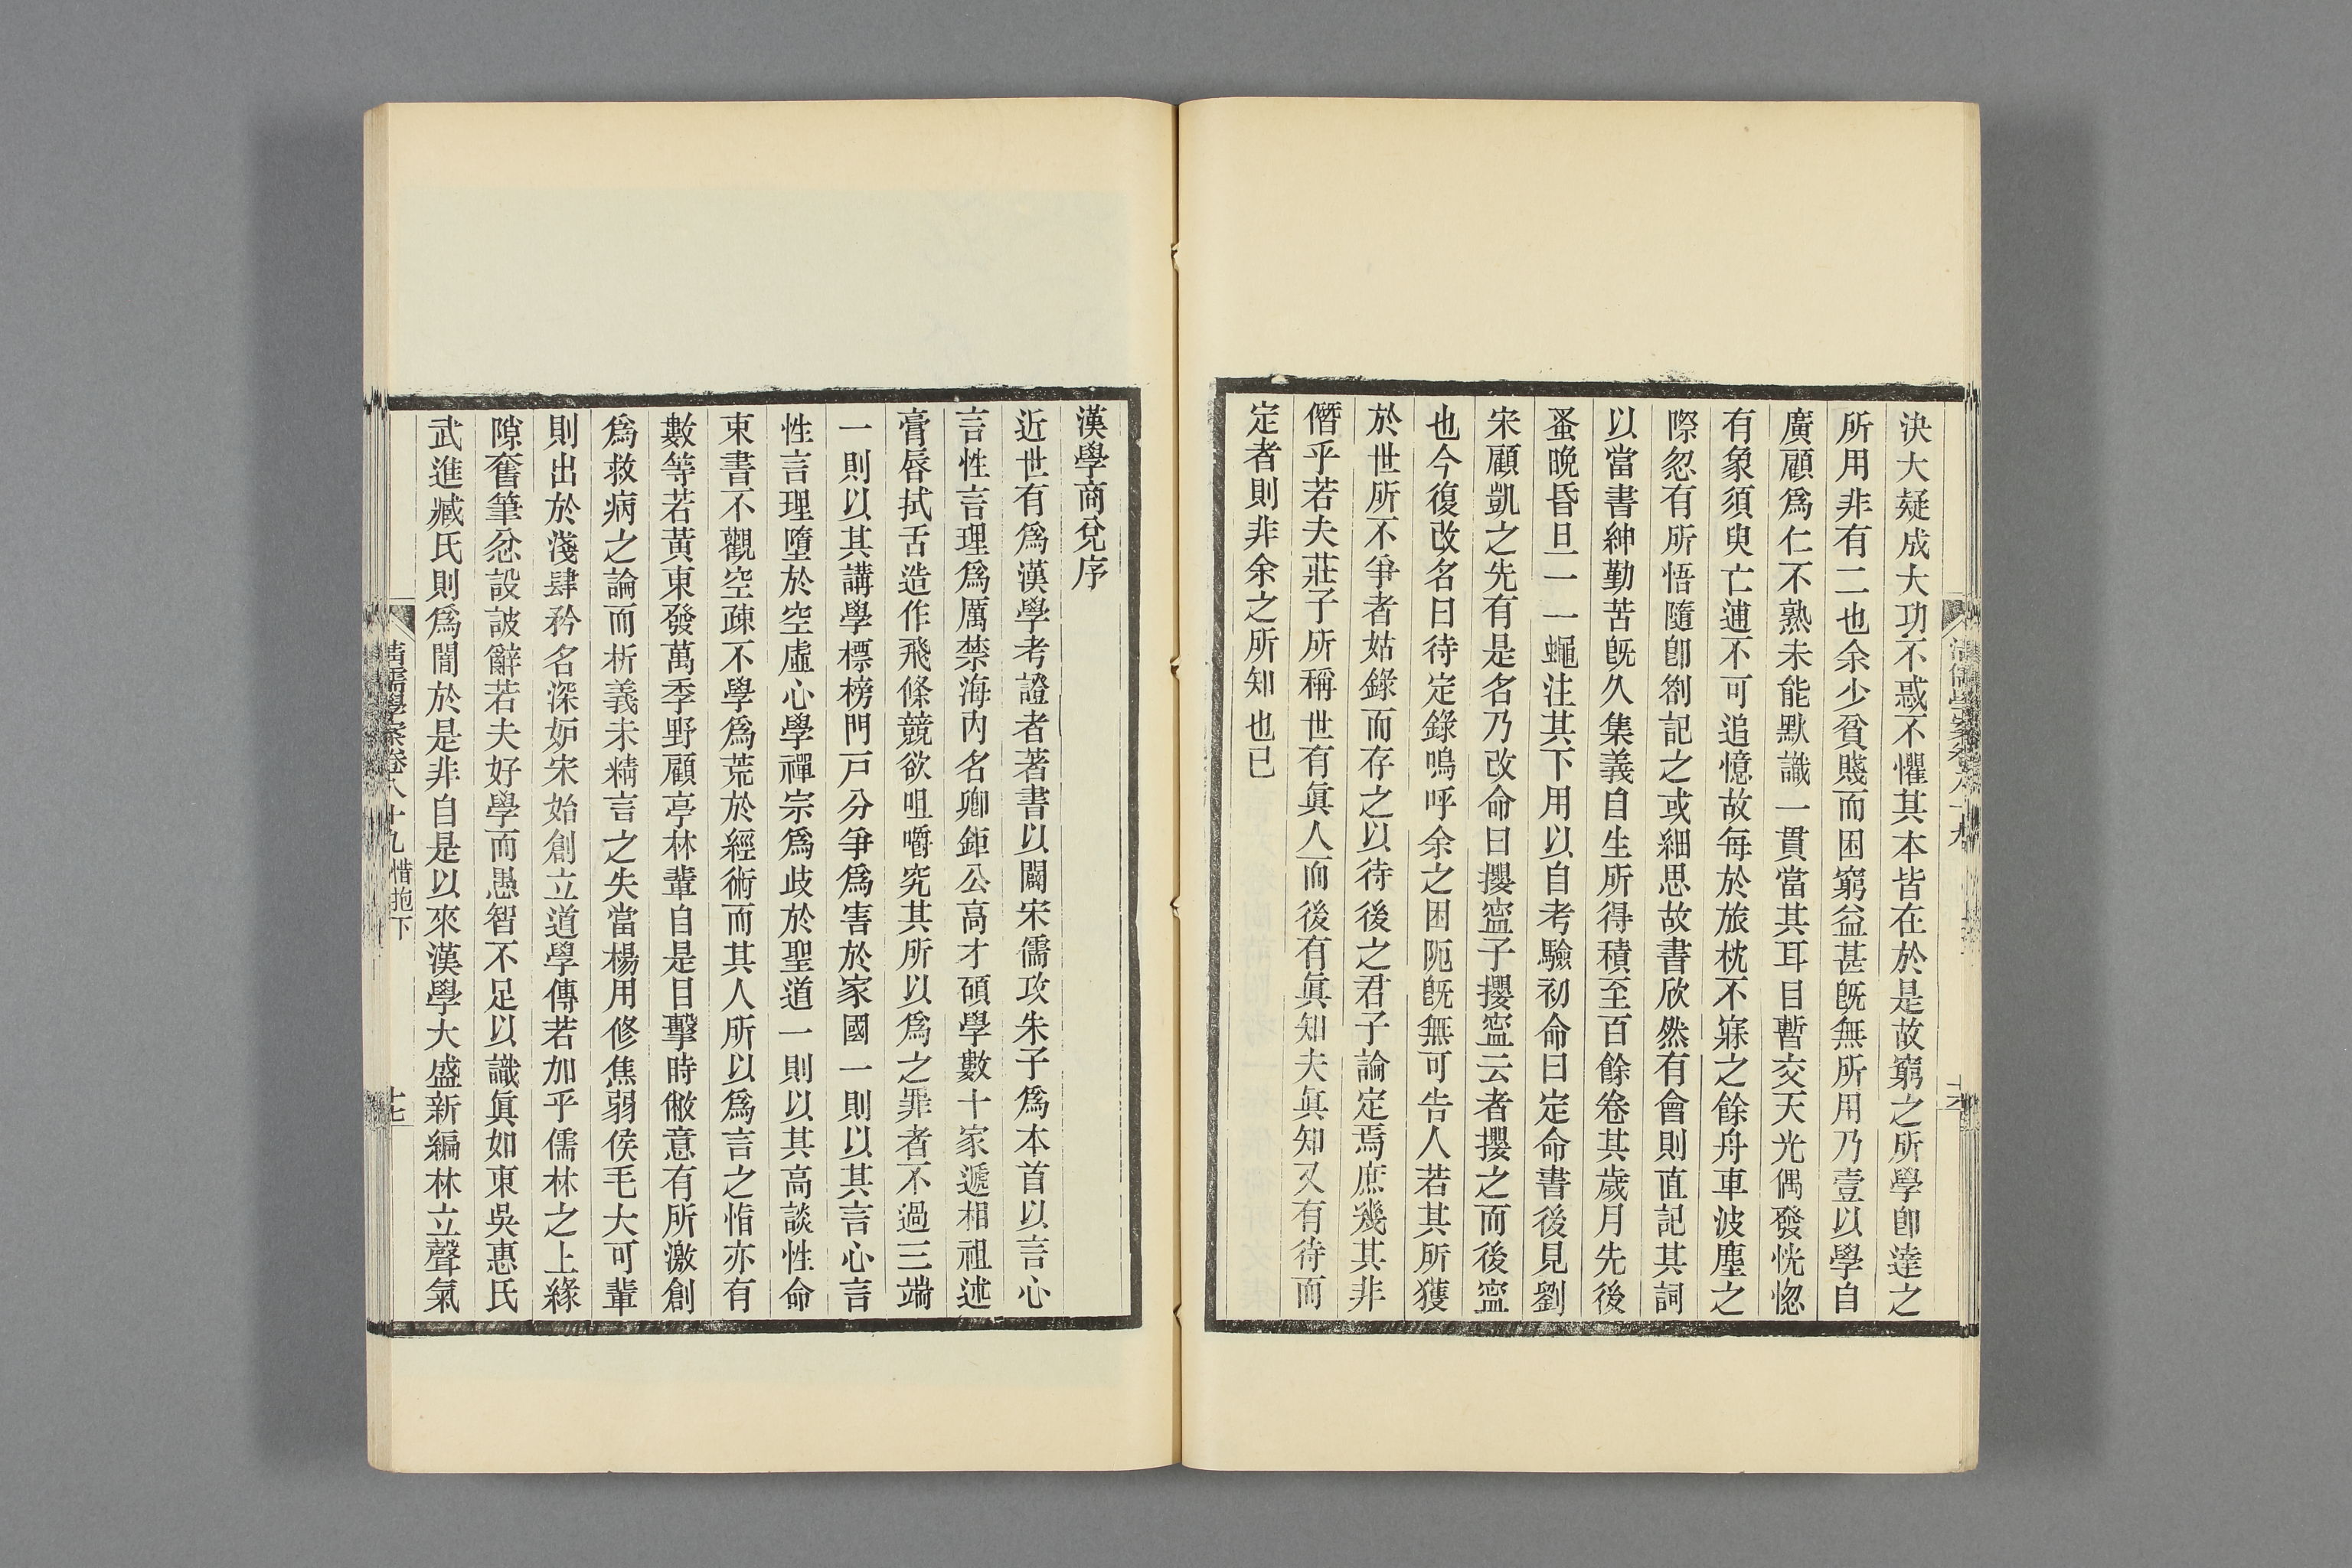 決大疑成大功不惑不懼其本皆在於是故窮之所學卽達之
所用非有二也余少貧賤而困窮益甚旣無所用乃壹以學自
廣顧爲仁不熟未能默識一貫當其耳目暫交天光偶發恍惚
有象須臾亡逋不可追憶故每於旅枕不寐之餘舟車波塵之
際忽有所悟隨卽劄記之或細思故書欣然有會則直記其詞
以當書紳勤苦旣久集義自生所得積至百餘卷其歲月先後
蚤晚昏旦一一蠅注其下用以自考驗初命曰定命書後見劉
宋顧凱之先有是名乃改命曰攖寍子攖寍云者攖之而後寍
也今復改名曰待定錄嗚呼余之困阨旣無可告人若其所獲
於世所不爭者姑錄而存之以待後之君子論定焉庶幾其非
僭乎若夫莊子所稱世有眞人而後有眞知夫眞知又有待而
定者則非余之所知也已
漢學商兌序
近世有爲漢學考證者著書以闢宋儒攻朱子爲本首以言心
言性言理爲厲禁海內名卿鉅公高才碩學數十家遞相祖述
膏唇拭舌造作飛條競欲咀嚼究其所以爲之罪者不過三端
一則以其講學標榜門戸分爭爲害於家國一則以其言心言
性言理墮於空虛心學禪宗爲歧於聖道一則以其高談性命
束書不觀空疎不學爲荒於經術而其人所以爲言之恉亦有
數等若黃東發萬季野顧亭林輩自是目擊時敝意有所激創
爲救病之論而析義未精言之失當楊用修焦弱侯毛大可輩
則出於淺肆矜名深妒宋始創立道學傳若加乎儒林之上緣
隙奮筆忿設詖辭若夫好學而愚智不足以識眞如東吳惠氏
武進臧氏則爲闇於是非自是以來漢學大盛新編林立聲氣
清儒學案卷八十九 惜抱下
十七